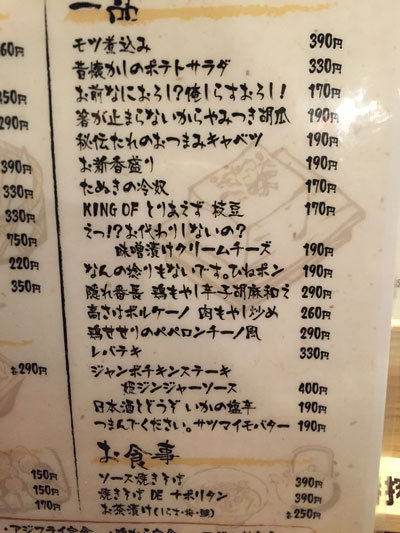 一品
モツ煮込み 390円
昔懐かしのポテトサラダ 330円
お前なにおろし!?俺しらすおろし! 170円
箸が止まらないからやみつき胡瓜 190円
秘伝たれのおつまみキャベツ 190円
お新香盛り 190円
たぬきの冷奴 170円
KING OF とりあえず 枝豆 170円
えっ!?お代わりしないの?
味噌漬けクリームチーズ 190円
なんの捻りもないです。ひねポン 190円
隠れ番長 鶏もやし辛子胡麻和え 290円
高さはボルケーノ 肉もやし炒め 260円
鶏せせりのペペロンチーノ風 290円
レバテキ 330円
ジャンボチキンステーキ
ジンジャーソース 400円
日本酒とどうぞ いかの塩辛 190円
つまんでください。サツマイモバター 190円
お食事
ソース焼きそば 390円
焼きそば DE ナポリタン 390円
お茶漬け(しらす・梅・鮭) 各250円
60円
350円
290円
390円
330円
330円
750円
220円
350円
各290円
150円
150円
170円